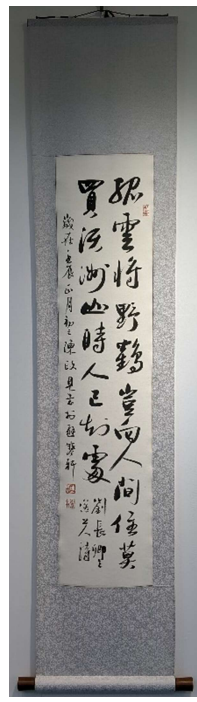 孤雲將野鶴豈向人間住莫
買沃洲山時人已知處
劉長卿
送上人詩
歲在壬辰正月初 陳政見書於